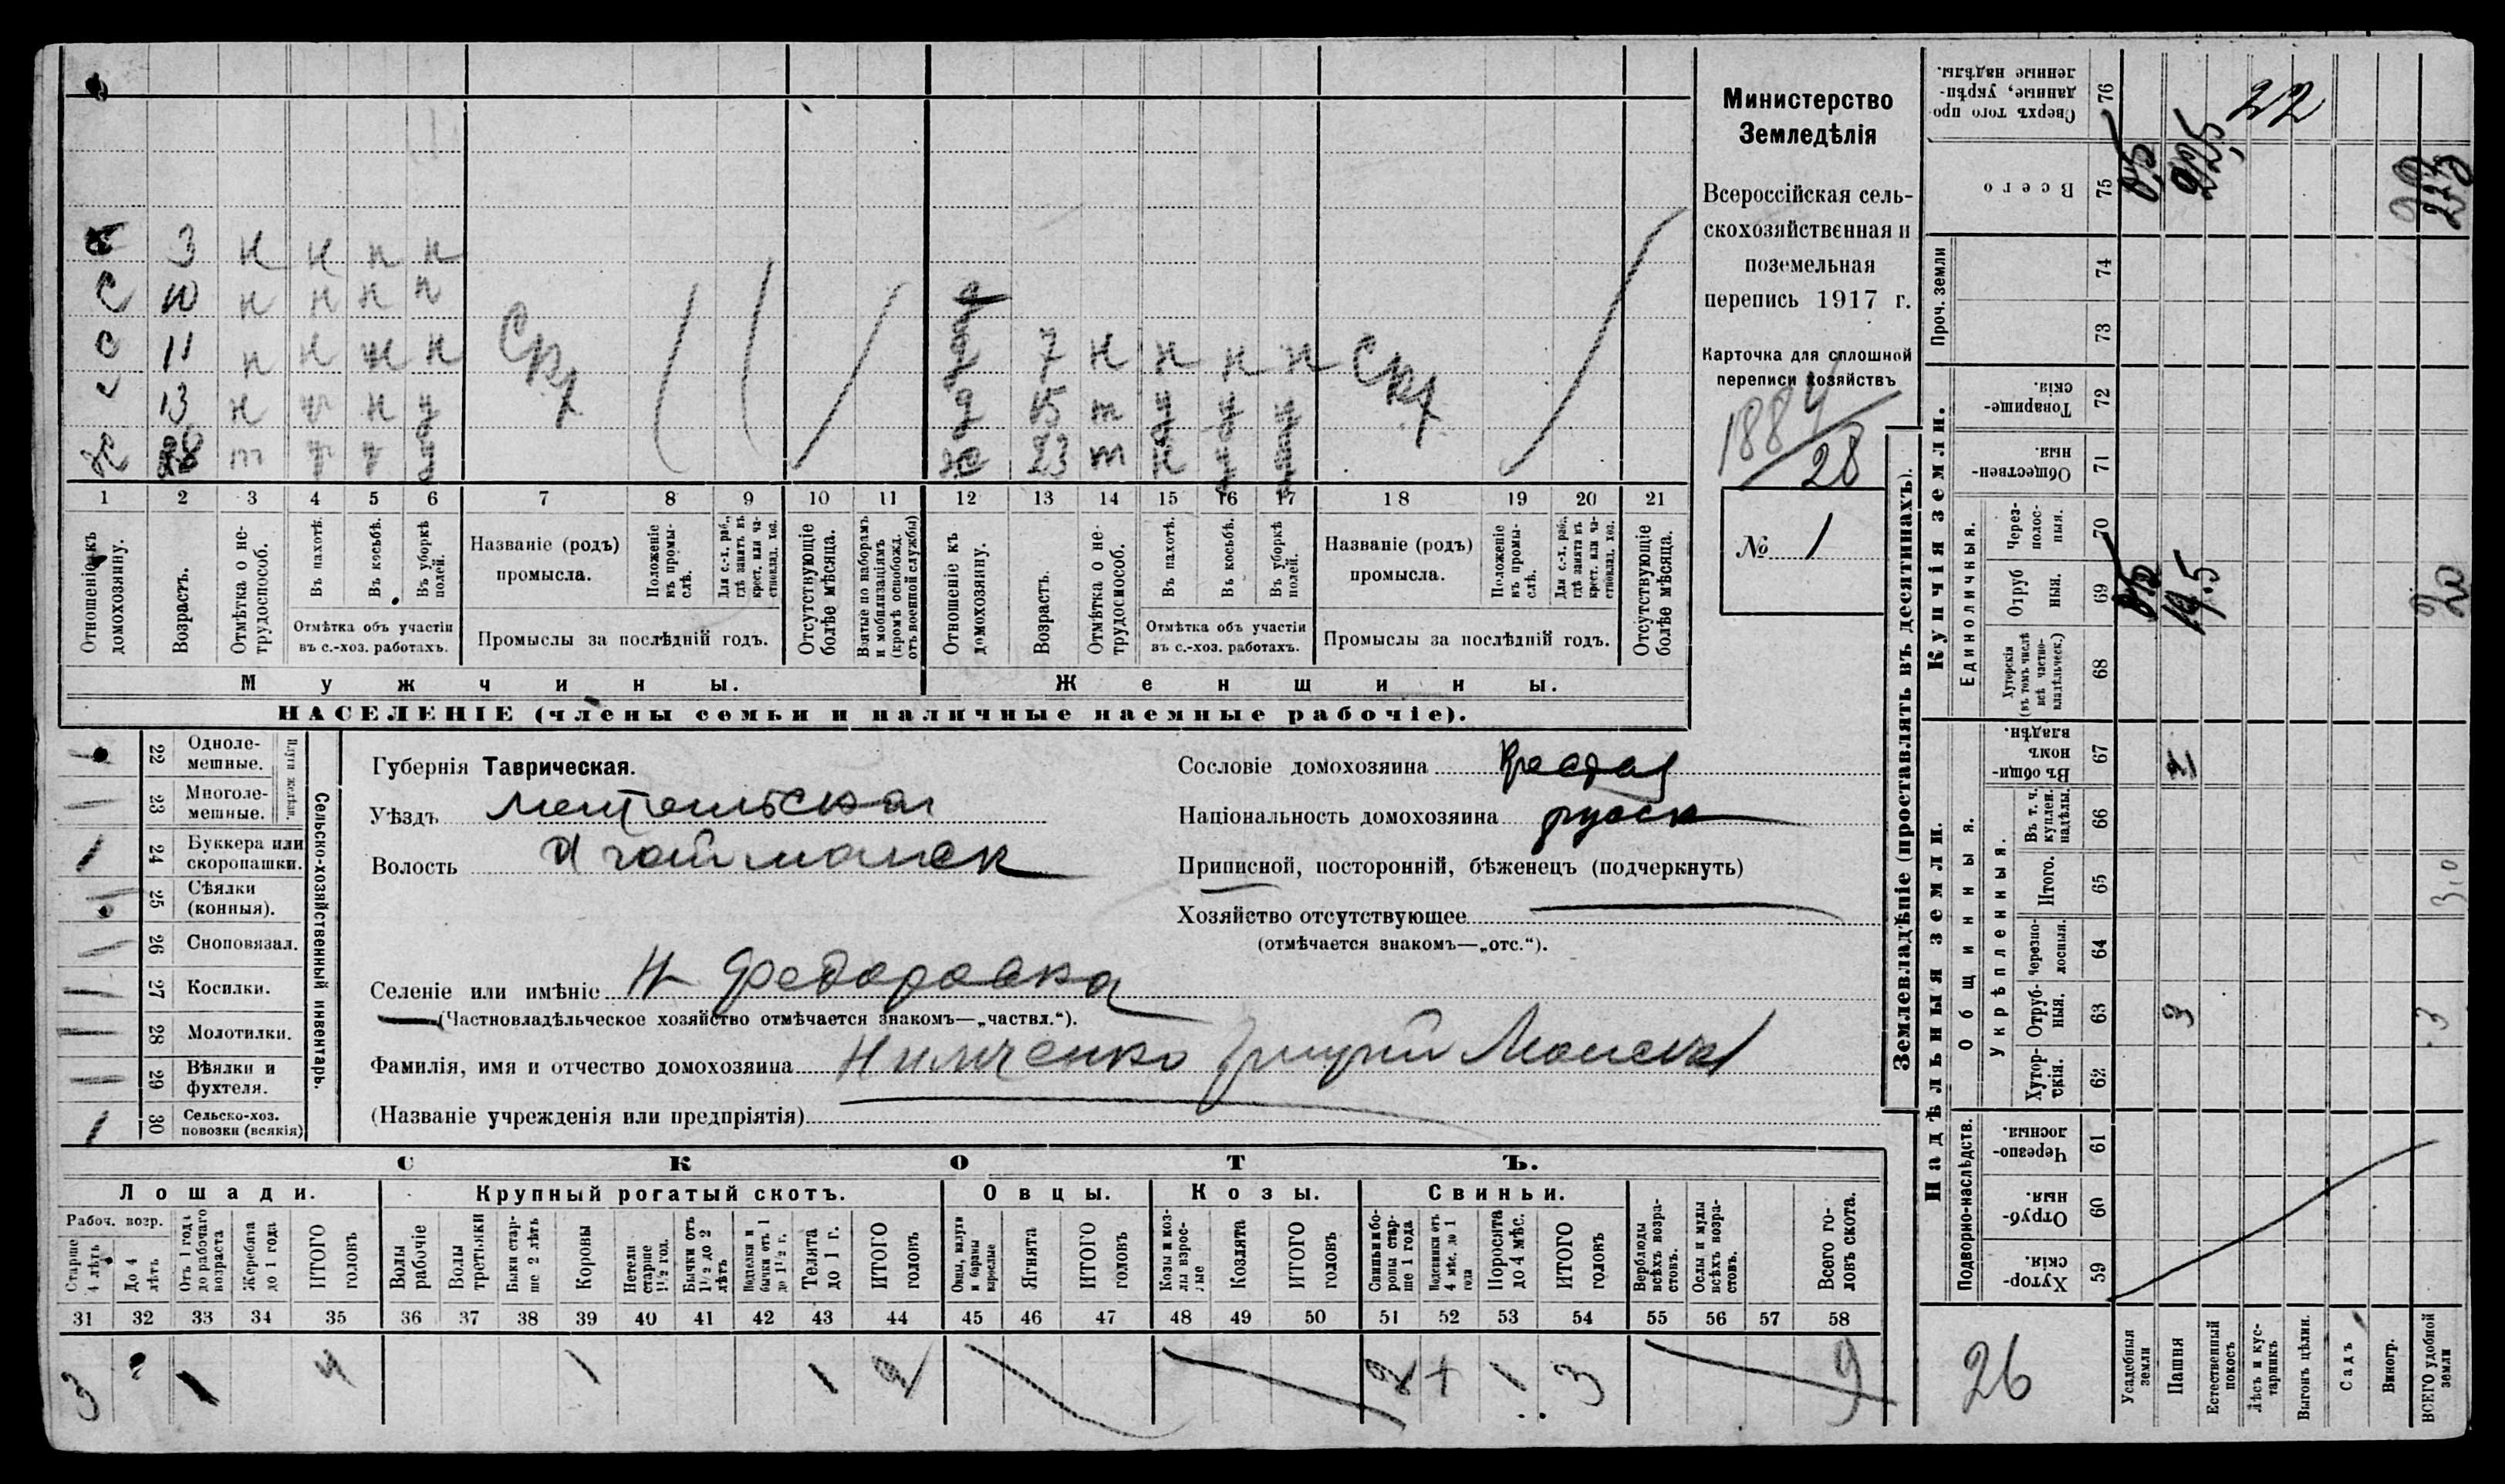 Министерство
Земледѣлія
Всероссійская сель-
скохозяйственная и
поземельная
перепись 1917 г.
Карточка для сплошной
переписи хозяйствъ
1884/28
№ 1
с 3 н н н н
с 10 н н н н
с 11 н н н н
13 н н у
х 28 т у
д
д 7 н н н н
д 15 т у у у
ж 23 т н у у
1 2 3 4 5 6 7 8 9 10 11 12 13 14 15 16 17 18 19 20 21
Отношеніе къ домохозяину.
Возрастъ.
Отмѣтка о не-трудоспособ.
Въ пахотѣ.
Въ косьбѣ.
Въ уборкѣ полей.
Отмѣтка объ участіи въ с.-хоз. работахъ.
Названіе (родъ) промысла.
Положеніе въ промы-слѣ.
Для с.-х. раб., гдѣ занятъ въ крест. или ча-стновлад. хоз.
Промыслы за послѣдній годъ.
Отсутствующіе болѣе мѣсяца.
Взятые по наборамъ и мобилизаціямъ (кромѣ освобожд. отъ военной службы)
Отношеніе къ домохозяину.
Возрастъ.
Отмѣтка о не-трудоспособ.
Въ пахотѣ.
Въ косьбѣ.
Въ уборкѣ полей.
Отмѣтка объ участіи въ с.-хоз. работахъ.
Названіе (родъ) промысла.
Положеніе въ промы-слѣ.
Для с.-х. раб., гдѣ занята въ крест. или ча-стновлад. хоз.
Промыслы за послѣдній годъ.
Отсутствующіе болѣе мѣсяца.
Мужчины.
Женщины.
НАСЕЛЕНІЕ (члены семьи и наличные наемные рабочіе).
22 Одноле-мешные.
23 Многоле-мешные.
Плуги желѣзн.
24 Буккера или скоропашки.
25 Сѣялки (конныя).
26 Сноповязал.
27 Косилки.
28 Молотилки.
29 Вѣялки и фухтеля.
30 Сельско-хоз. повозки (всякія)
Сельско-хозяйственный инвентарь.
Губернія Таврическая.
Уѣздъ
Волость Агайманск
Селеніе или имѣніе Н Федоровка
(Частновладѣльческое хозяйство отмѣчается знакомъ—„частвл.“).
Фамилія, имя и отчество домохозяина
(Названіе учрежденія или предпріятія)
Сословіе домохозяина
Національность домохозяина русск
Приписной, посторонній, бѣженецъ (подчеркнуть)
Хозяйство отсутствующее
(отмѣчается знакомъ—„отс.“).
СКОТЪ.
Лошади.
Крупный рогатый скотъ.
Овцы.
Козы.
Свиньи.
Рабоч. возр.
Старше 4 лѣтъ
До 4 лѣтъ
Отъ 1 года до рабочаго возраста
Жеребята до 1 года
ИТОГО головъ
Волы рабочіе
Волы третьяки
Быки стар-ше 2 лѣтъ
Коровы
Нетели старше 1½ год.
Бычки отъ 1½ до 2 лѣтъ
Подтелки и бычки отъ 1 до 1½ г.
Телята до 1 г.
ИТОГО головъ
Овцы, валухи и бараны взрослые
Ягнята
ИТОГО головъ
Козы и коз-лы взрос-лые
Козлята
ИТОГО головъ
Свиньи и бо-ровы стар-ше 1 года
Подсвинки отъ 4 мѣс. до 1 года
Поросята до 4 мѣс.
ИТОГО головъ
Верблюды всѣхъ возра-стовъ.
Ослы и мулы всѣхъ возра-стовъ.
Всего го-ловъ скота.
31 32 33 34 35 36 37 38 39 40 41 42 43 44 45 46 47 48 49 50 51 52 53 54 55 56 57 58
3 1 4 1 1 2 2 1 3 9
Землевладѣніе (проставлять въ десятинахъ).
Сверхъ того про-данные, укрѣп-ленные надѣлы. 76 22
Всего 75
Проч. земли 74 73
Купчія земли.
Товарище-скія. 72
Обществен-ныя. 71
Единоличныя.
Черезполос-ныя. 70
Отруб-ныя. 69 19,5 20
Хуторскія (въ томъ числѣ всѣ частно-владѣльческ.) 68
Надѣльныя земли.
Общинныя.
Въ общин-номъ владѣн. 67
Укрѣпленныя.
Въ т. ч. куплен. надѣлы. 66
Итого. 65 3,0
Черезпо-лосныя. 64
Отруб-ныя. 63 3 3
Хутор-скія. 62
Подворно-наслѣдств.
Черезпо-лосныя. 61
Отруб-ныя 60
Хутор-скія. 59
26
Усадебныя земли
Пашня
Естественный покосъ
Лѣсъ и кус-тарникъ
Выгонъ цѣлин.
Садъ
Виногр.
ВСЕГО удобной земли